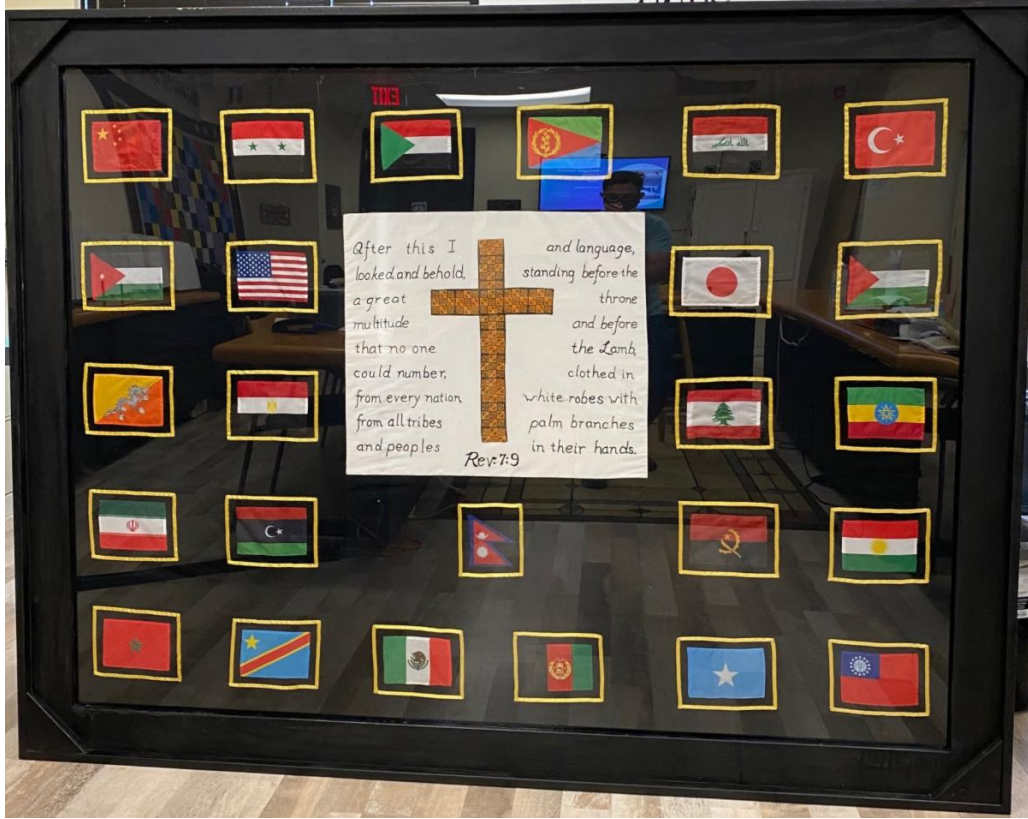 EXIT
الله اكبر
After this I
looked and behold,
a great
multitude
that no one
could number,
from every nation
from all tribes
and peoples
and language,
standing before the
throne
and before
the Lamb,
clothed in
white robes with
palm branches
in their hands.
Rev:7:9